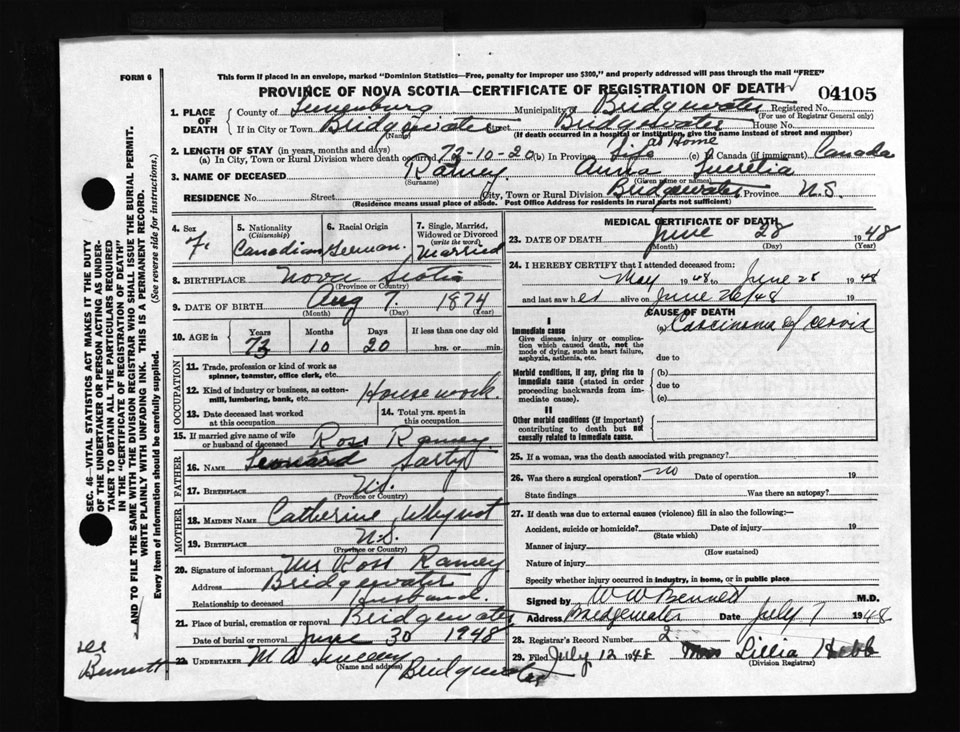 FORM 6
This form if placed in an envelope, marked "Dominion Statistics—Free, penalty for improper use $300," and properly addressed will pass through the mail "FREE"
PROVINCE OF NOVA SCOTIA—CERTIFICATE OF REGISTRATION OF DEATH
04105
1. PLACE OF DEATH
County of Lunenburg Municipality Bridgewater Registered No.
(For use of Registrar General only)
If in City or Town Bridgewater Street Bridgewater House No.
(Name) (If death occurred in a hospital or institution, give the name instead of street and number)
at Home
2. LENGTH OF STAY (in years, months and days)
(a) In City, Town or Rural Division where death occurred 73-10-20 (b) In Province Life (c) In Canada (if immigrant) Canada
3. NAME OF DECEASED Ramey Anna Lucretia
(Surname) (Given name or names)
RESIDENCE No. Street City, Town or Rural Division Bridgewater Province N.S.
(Residence means usual place of abode. Post Office Address for residents in rural parts not sufficient)
4. Sex F.
5. Nationality (Citizenship) Canadian
6. Racial Origin German
7. Single, Married, Widowed or Divorced (write the word) Married
8. BIRTHPLACE Nova Scotia
(Province or Country)
9. DATE OF BIRTH Aug 7. 1874
(Month) (Day) (Year)
10. AGE in Years Months Days If less than one day old
73 10 20 hrs. or min.
OCCUPATION
11. Trade, profession or kind of work as spinner, teamster, office clerk, etc.
12. Kind of industry or business, as cotton-mill, lumbering, bank, etc. Housework.
13. Date deceased last worked at this occupation
14. Total yrs. spent in this occupation
15. If married give name of wife or husband of deceased Ross Ramey
FATHER
16. NAME Leonard Sarty
17. BIRTHPLACE N.S.
(Province or Country)
MOTHER
18. MAIDEN NAME Catherine Whynot
19. BIRTHPLACE N.S.
(Province or Country)
20. Signature of informant Mr Ross Ramey
Address Bridgewater
Relationship to deceased husband.
21. Place of burial, cremation or removal Bridgewater
Date of burial or removal June 30 1948
22. UNDERTAKER M A Sweeny Bridgewater
(Name and address)
MEDICAL CERTIFICATE OF DEATH
23. DATE OF DEATH June 28 1948
(Month) (Day) (Year)
24. I HEREBY CERTIFY that I attended deceased from:
May 1948 to June 28 1948
and last saw her alive on June 26/48 19
CAUSE OF DEATH
I
Immediate cause
Give disease, injury or complication which caused death, not the mode of dying, such as heart failure, asphyxia, asthenia, etc.
(a) Carcinoma of cervix
due to
Morbid conditions, if any, giving rise to immediate cause (stated in order proceeding backwards from immediate cause).
(b)
due to
(c)
II
Other morbid conditions (if important) contributing to death but not causally related to immediate cause.
25. If a woman, was the death associated with pregnancy?
26. Was there a surgical operation? no Date of operation 19
State findings Was there an autopsy?
27. If death was due to external causes (violence) fill in also the following:—
Accident, suicide or homicide? Date of injury 19
(State which)
Manner of injury
(How sustained)
Nature of injury
Specify whether injury occurred in industry, in home, or in public place
Signed by W W Bennett M.D.
Address Bridgewater Date July 7 1948
28. Registrar's Record Number 2
29. Filed July 12 1948 Lillia Hebb
(Division Registrar)
SEC. 46—VITAL STATISTICS ACT MAKES IT THE DUTY
OF THE UNDERTAKER OR PERSON ACTING AS UNDERTAKER
TO OBTAIN ALL THE PARTICULARS REQUIRED
IN THE "CERTIFICATE OF REGISTRATION OF DEATH"
AND TO FILE THE SAME WITH THE DIVISION REGISTRAR WHO SHALL ISSUE THE BURIAL PERMIT.
WRITE PLAINLY WITH UNFADING INK. THIS IS A PERMANENT RECORD.
Every item of Information should be carefully supplied. (See reverse side for instructions.)
Bennett